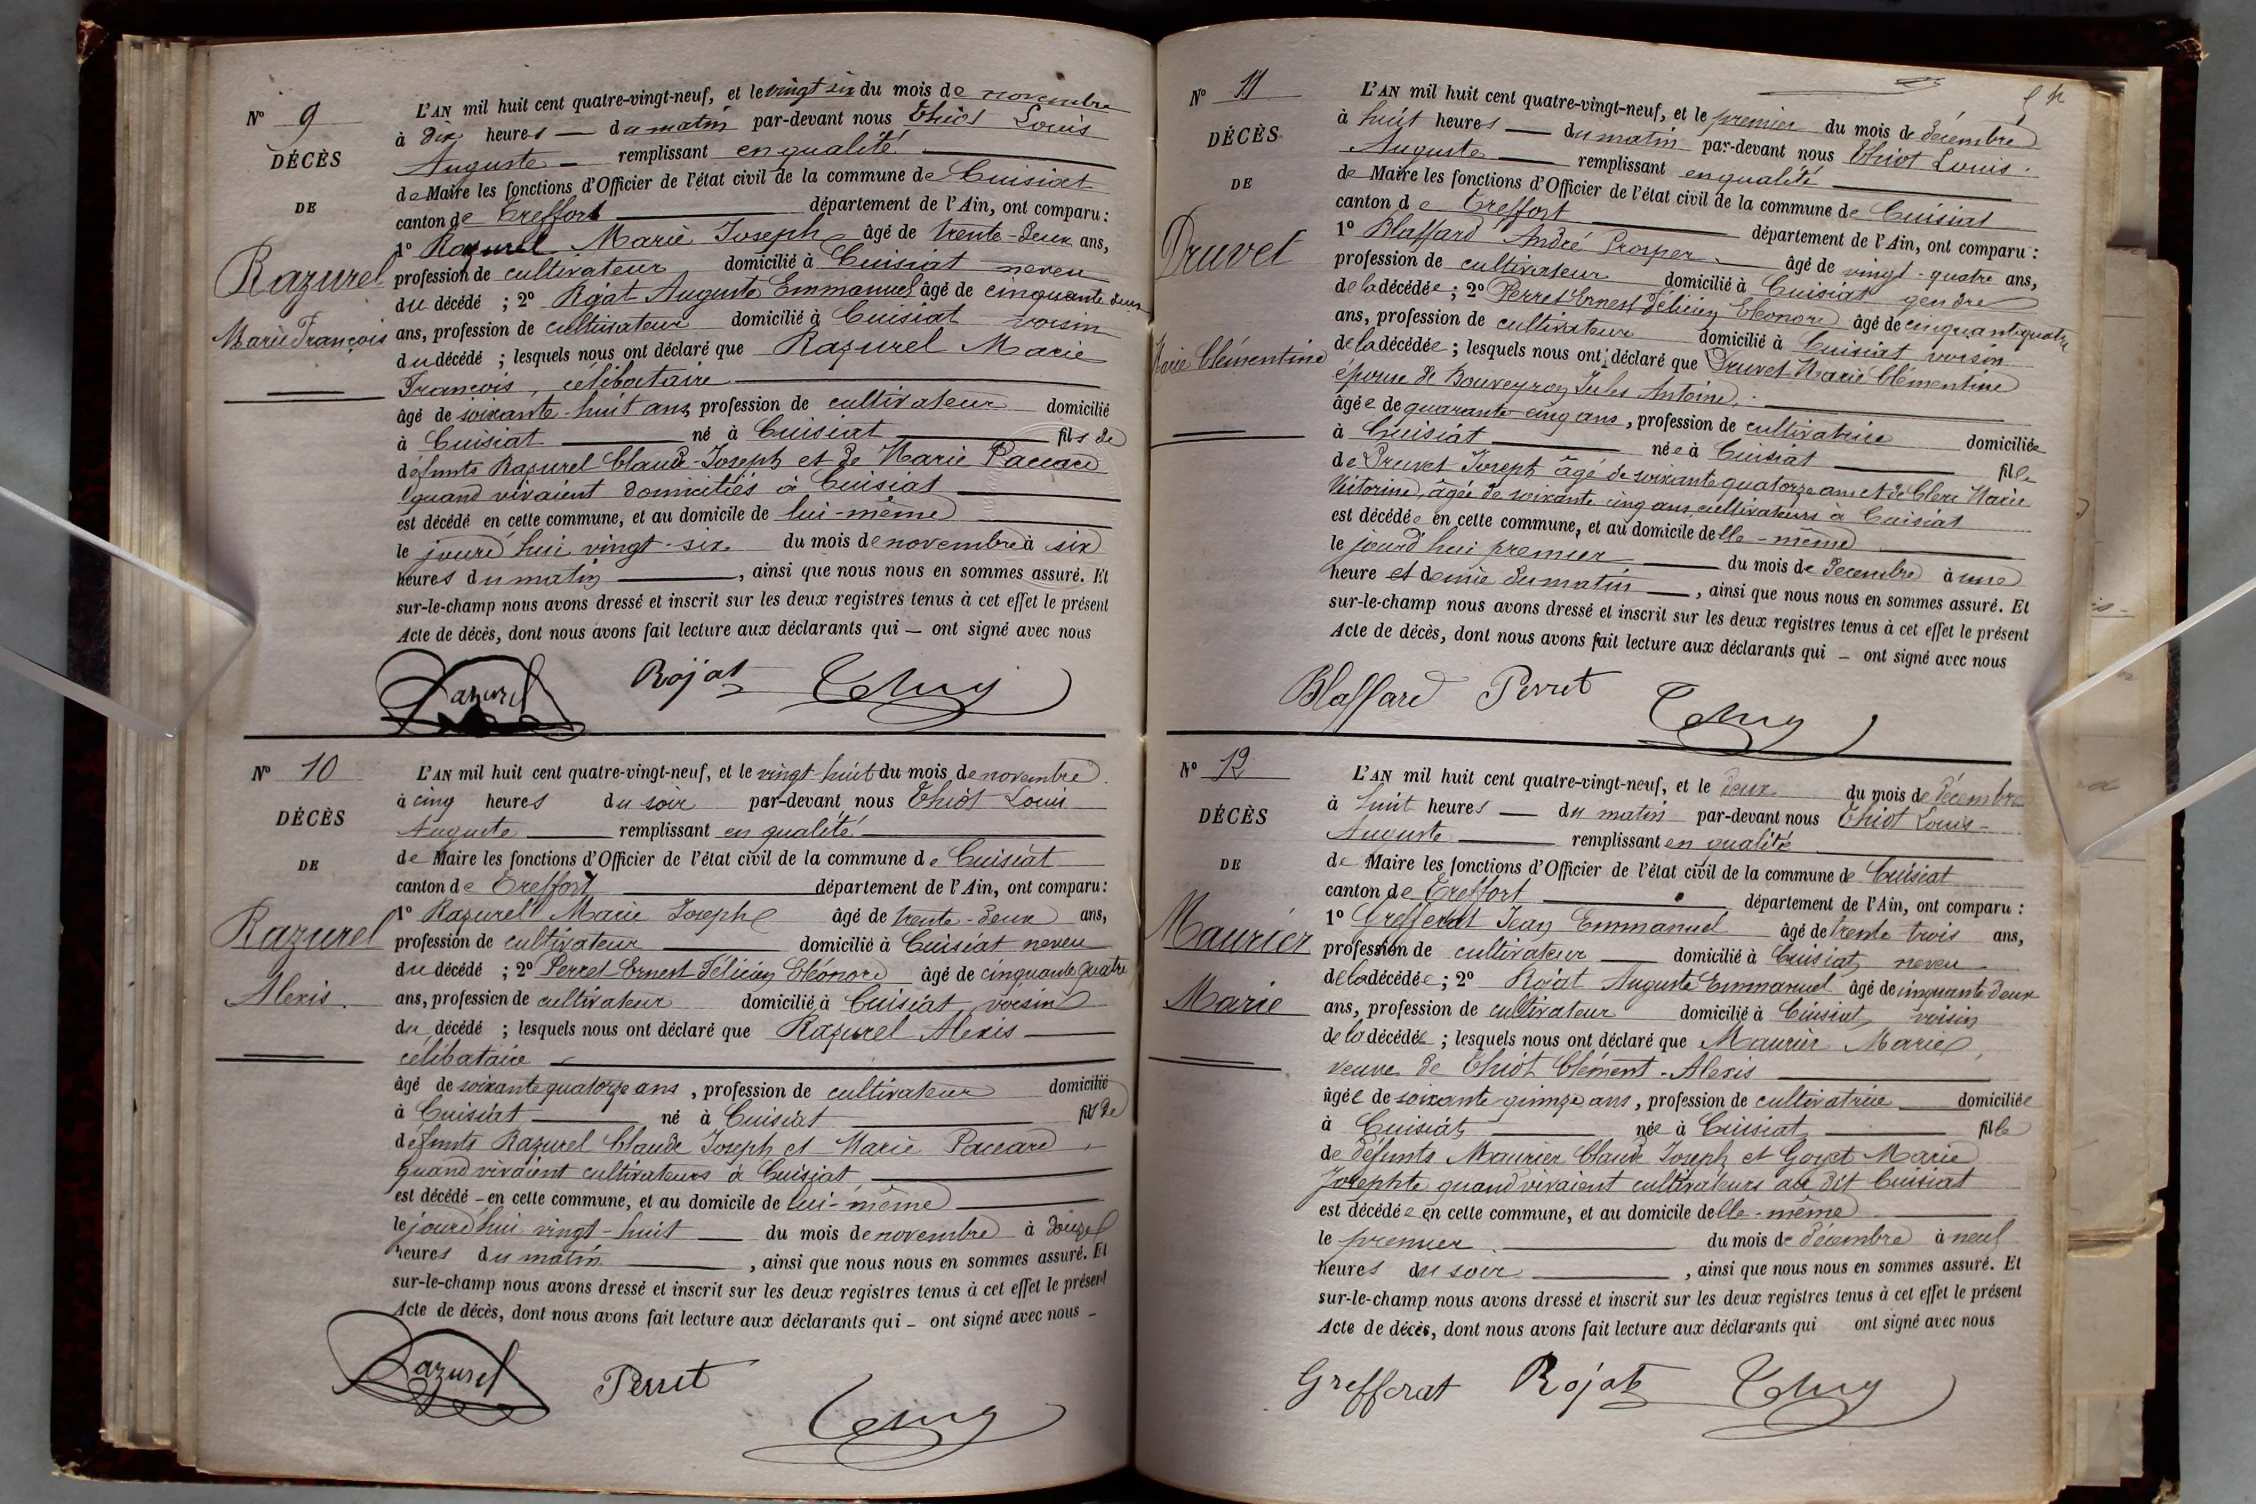 N° 9
DÉCÈS
DE
Razurel
Marie François
L'AN mil huit cent quatre-vingt-neuf, et le vingt six du mois de novembre
à dix heures — du matin par-devant nous Thiot Louis
Auguste — remplissant en qualité
de Maire les fonctions d'Officier de l'état civil de la commune de Cuisiat
canton de Treffort département de l'Ain, ont comparu :
1° Razurel Marie Joseph âgé de trente-deux ans,
profession de cultivateur domicilié à Cuisiat neveu
du décédé ; 2° Rojat Auguste Emmanuel âgé de cinquante deux
ans, profession de cultivateur domicilié à Cuisiat voisin
du décédé ; lesquels nous ont déclaré que Razurel Marie
François, célibataire
âgé de soixante-huit ans, profession de cultivateur domicilié
à Cuisiat né à Cuisiat fils de
défunts Razurel Claude-Joseph et de Marie Paccard
quand vivaient domiciliés à Cuisiat
est décédé en cette commune, et au domicile de lui-même
le jourd'hui vingt-six du mois de novembre à six
heures du matin, ainsi que nous nous en sommes assuré. Et
sur-le-champ nous avons dressé et inscrit sur les deux registres tenus à cet effet le présent
Acte de décès, dont nous avons fait lecture aux déclarants qui — ont signé avec nous
Razurel Rojat
N° 10
DÉCÈS
DE
Razurel
Alexis
L'AN mil huit cent quatre-vingt-neuf, et le vingt huit du mois de novembre
à cinq heures du soir par-devant nous Thiot Louis
Auguste remplissant en qualité
de Maire les fonctions d'Officier de l'état civil de la commune de Cuisiat
canton de Treffort département de l'Ain, ont comparu :
1° Razurel Marie Joseph âgé de trente-deux ans,
profession de cultivateur domicilié à Cuisiat neveu
du décédé ; 2° Perret Ernest Félicien Eléonore âgé de cinquante quatre
ans, profession de cultivateur domicilié à Cuisiat voisin
du décédé ; lesquels nous ont déclaré que Razurel Alexis
célibataire
âgé de soixante quatorze ans, profession de cultivateur domicilié
à Cuisiat né à Cuisiat fils de
défunts Razurel Claude Joseph et Marie Paccard,
quand vivaient cultivateurs à Cuisiat
est décédé — en cette commune, et au domicile de lui-même
le jourd'hui vingt-huit du mois de novembre à douze
heures du matin, ainsi que nous nous en sommes assuré. Et
sur-le-champ nous avons dressé et inscrit sur les deux registres tenus à cet effet le présent
Acte de décès, dont nous avons fait lecture aux déclarants qui — ont signé avec nous —
Razurel Perret
N° 11
DÉCÈS
DE
Druvet
Marie Clémentine
L'AN mil huit cent quatre-vingt-neuf, et le premier du mois de décembre
à huit heures — du matin par-devant nous Thiot Louis
Auguste remplissant en qualité
de Maire les fonctions d'Officier de l'état civil de la commune de Cuisiat
canton de Treffort département de l'Ain, ont comparu :
1° Blaffard André Prosper âgé de vingt-quatre ans,
profession de cultivateur domicilié à Cuisiat gendre
de la décédée ; 2° Perret Ernest Félicien Eléonore âgé de cinquante quatre
ans, profession de cultivateur domicilié à Cuisiat voisin
de la décédée ; lesquels nous ont déclaré que Druvet Marie Clémentine
épouse de Bouveyron Jules Antoine,
âgée de quarante-cinq ans, profession de cultivatrice domiciliée
à Cuisiat née à Cuisiat fille
de Druvet Joseph âgé de soixante quatorze ans et de Clerc Marie
Victorine, âgée de soixante cinq ans, cultivateurs à Cuisiat
est décédée en cette commune, et au domicile d'elle-même
le jourd'hui premier du mois de décembre à une
heure et demie du matin, ainsi que nous nous en sommes assuré. Et
sur-le-champ nous avons dressé et inscrit sur les deux registres tenus à cet effet le présent
Acte de décès, dont nous avons fait lecture aux déclarants qui — ont signé avec nous
Blaffard Perret
N° 12
DÉCÈS
DE
Maurier
Marie
L'AN mil huit cent quatre-vingt-neuf, et le deux du mois de décembre
à huit heures — du matin par-devant nous Thiot Louis
Auguste remplissant en qualité
de Maire les fonctions d'Officier de l'état civil de la commune de Cuisiat
canton de Treffort département de l'Ain, ont comparu :
1° Grefferat Jean Emmanuel âgé de trente trois ans,
profession de cultivateur domicilié à Cuisiat neveu
de la décédée ; 2° Rojat Auguste Emmanuel âgé de cinquante deux
ans, profession de cultivateur domicilié à Cuisiat, voisin
de la décédée ; lesquels nous ont déclaré que Maurier Marie,
veuve de Thiot Clément-Alexis
âgée de soixante-quinze ans, profession de cultivatrice domiciliée
à Cuisiat née à Cuisiat fille
de défunts Maurier Claude Joseph et Goyet Marie
Josephte quand vivaient cultivateurs au dit Cuisiat
est décédée en cette commune, et au domicile d'elle-même
le premier du mois de décembre à neuf
heures du soir, ainsi que nous nous en sommes assuré. Et
sur-le-champ nous avons dressé et inscrit sur les deux registres tenus à cet effet le présent
Acte de décès, dont nous avons fait lecture aux déclarants qui ont signé avec nous
Grefferat Rojat